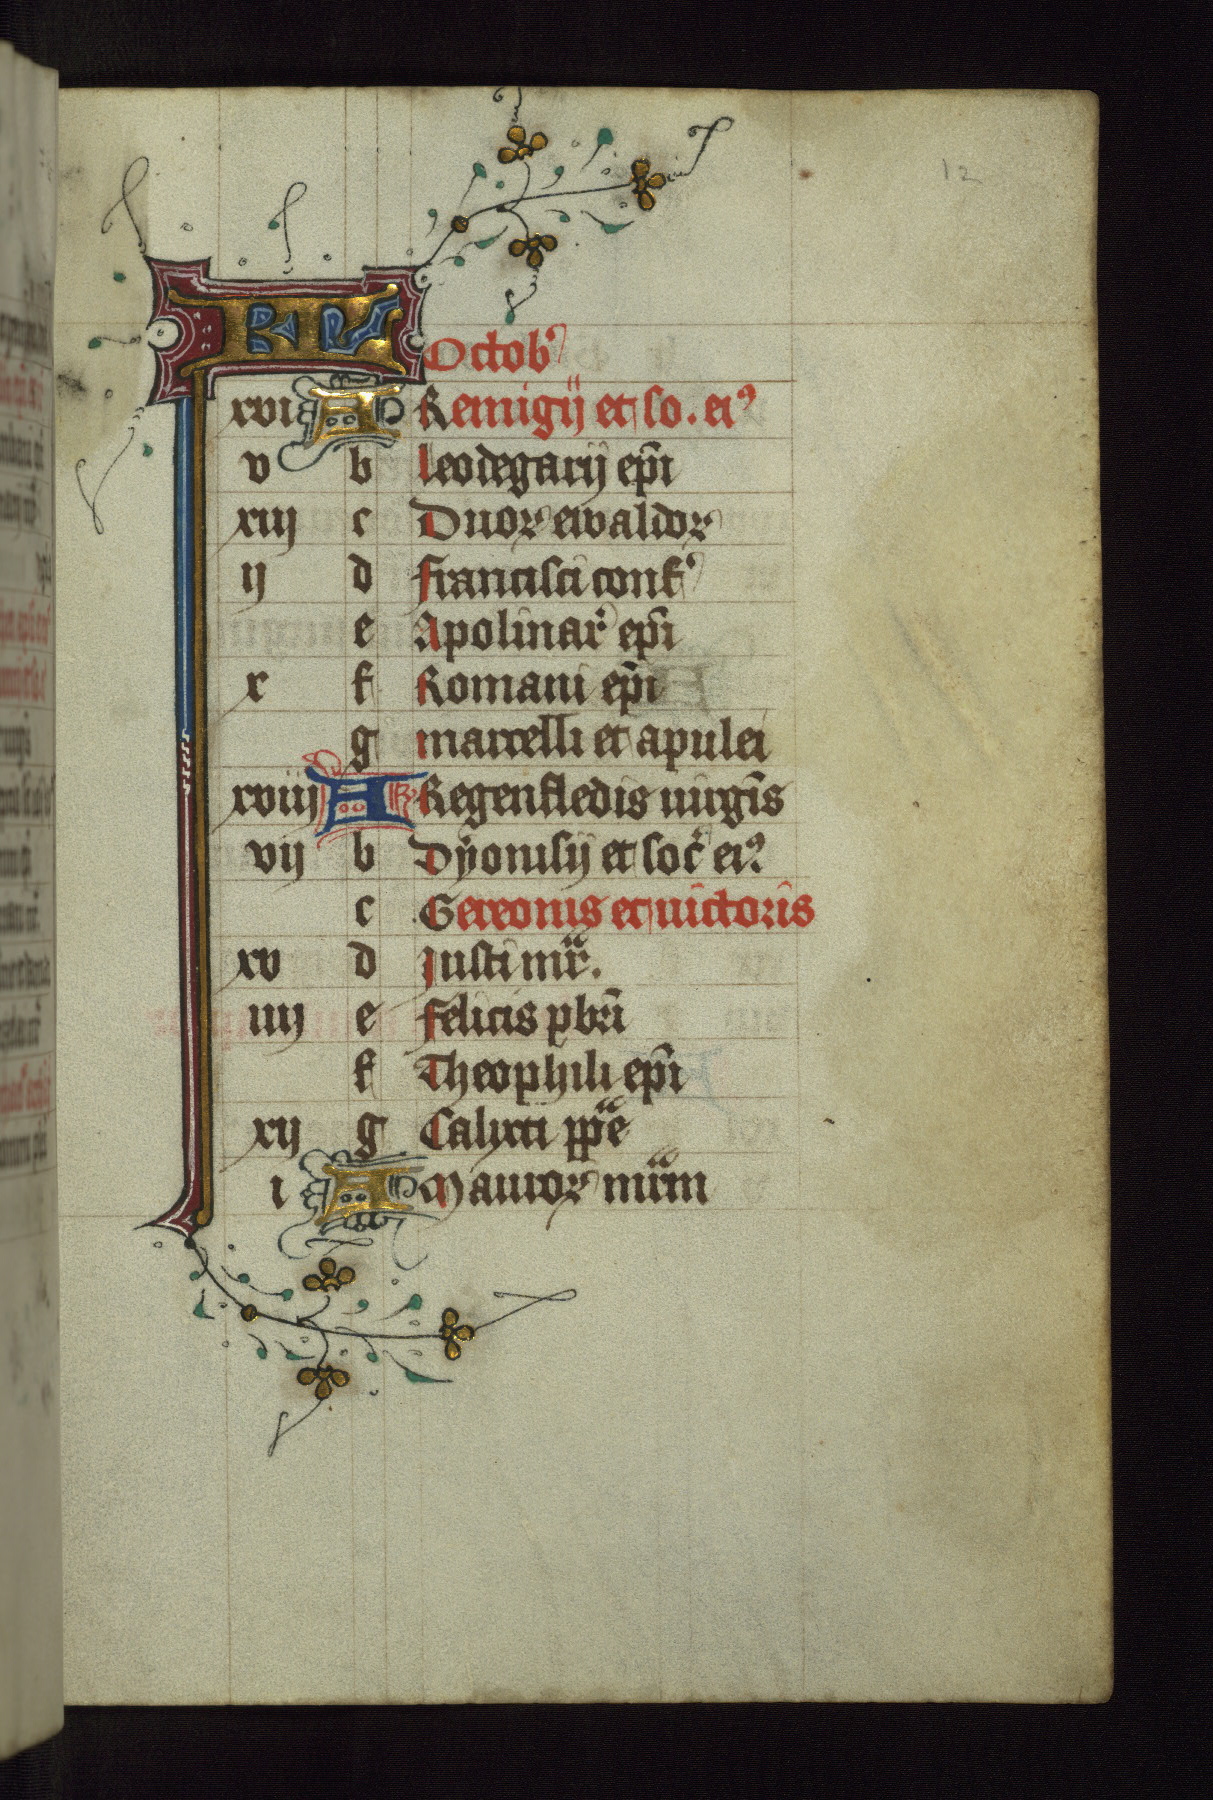 12
KL Octob'
xvi A Remigij et so. ei⁹
v b leodegarij ep̄i
xiij c Duoꝝ ewaldoꝝ
ij d francisci conf'
e Apolinar' ep̄i
x f Romani ep̄i
g marcelli et apulei
xviij A Regenfledis uirgīs
vij b Dyonisij et soc̄ ei⁹
c Gereonis et uictoris
xv d Justi mr̄.
iiij e felicis pb̄ri
f Theophili ep̄i
xij g Calixti pp̄e
i A Mauroꝝ mr̄m